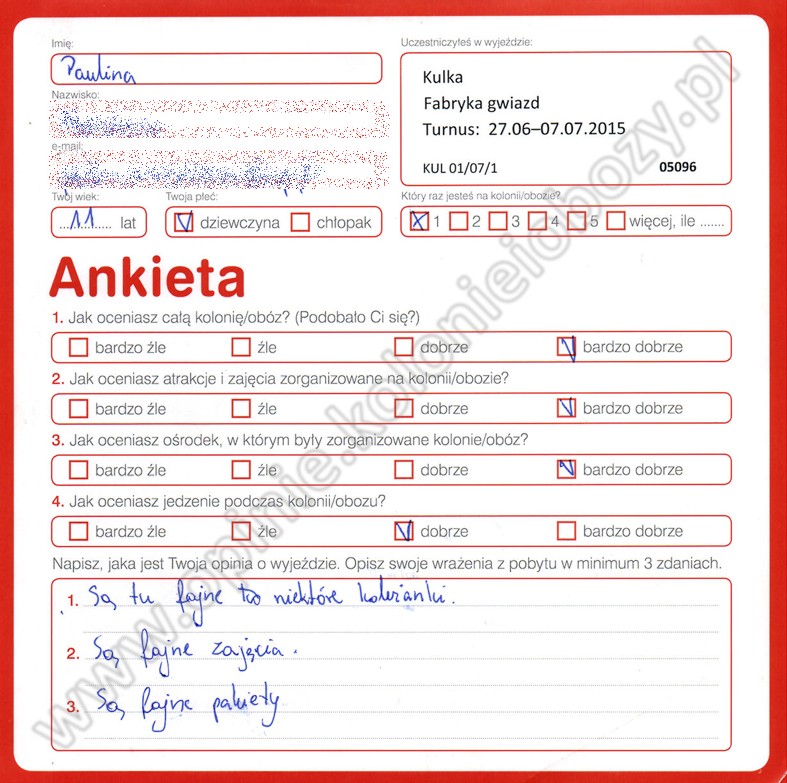 Imię:
Paulina
Nazwisko:
e-mail:
Twój wiek:
11 lat
Twoja płeć:
dziewczyna chłopak
Uczestniczyłeś w wyjeździe:
Kulka
Fabryka gwiazd
Turnus: 27.06–07.07.2015
KUL 01/07/1 05096
Który raz jesteś na kolonii/obozie?
1 2 3 4 5 więcej, ile .......
Ankieta
1. Jak oceniasz całą kolonię/obóz? (Podobało Ci się?)
bardzo źle źle dobrze bardzo dobrze
2. Jak oceniasz atrakcje i zajęcia zorganizowane na kolonii/obozie?
bardzo źle źle dobrze bardzo dobrze
3. Jak oceniasz ośrodek, w którym były zorganizowane kolonie/obóz?
bardzo źle źle dobrze bardzo dobrze
4. Jak oceniasz jedzenie podczas kolonii/obozu?
bardzo źle źle dobrze bardzo dobrze
Napisz, jaka jest Twoja opinia o wyjeździe. Opisz swoje wrażenia z pobytu w minimum 3 zdaniach.
1. Są tu fajne niektóre koleżanki.
2. Są fajne zajęcia.
3. Są fajne pakiety
www.opinie.kolonieiobozy.pl